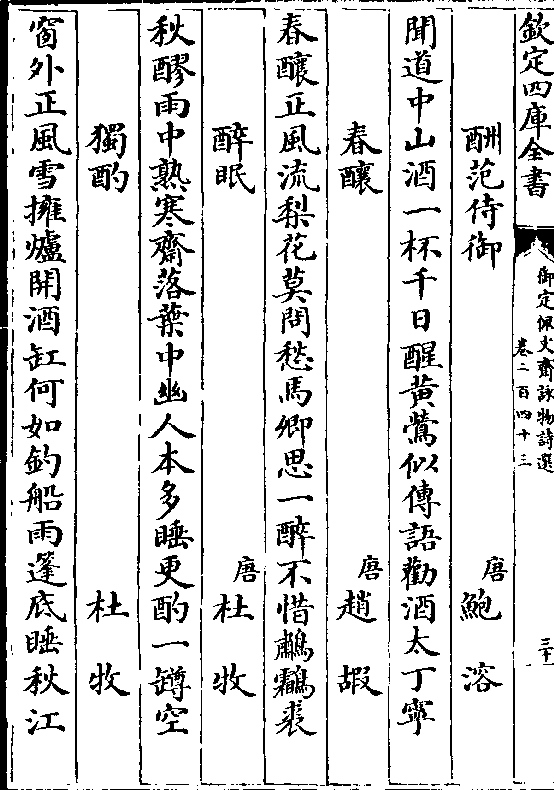 欽定四庫全書
御定佩文齋詠物詩選
卷二百四十三
三十
酬范侍御
唐 鮑溶
聞道中山酒一杯千日醒黃鶯似傳語勸酒太丁寧
春釀
唐 趙嘏
春釀正風流梨花莫問愁馬卿思一醉不惜鷫鸘裘
醉眠
唐 杜牧
秋醪雨中熟寒齋落葉中幽人本多睡更酌一罇空
獨酌
杜牧
窗外正風雪擁爐開酒缸何如釣船雨篷底睡秋江